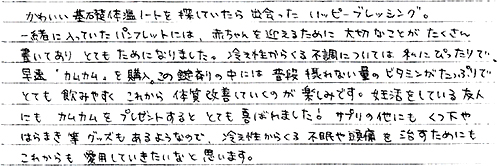 かわいい基礎体温ノートを探していたら出会ったハッピーブレッシング。
一緒に入っていたパンフレットには、赤ちゃんを迎えるために大切なことがたくさん
書いてありとてもためになりました。冷え性からくる不調については私にぴったりで、
早速"カムカム"を購入。この錠剤の中には普段摂れない量のビタミンがたっぷりで
とても飲みやすくこれから体質改善していくのが楽しみです。妊活をしている友人
にもカムカムをプレゼントするととても喜ばれました!サプリの他にもくつ下や
はらまき等グッズもあるようなので、冷え性からくる不眠や頭痛を治すためにも
これからも愛用していきたいなと思います。